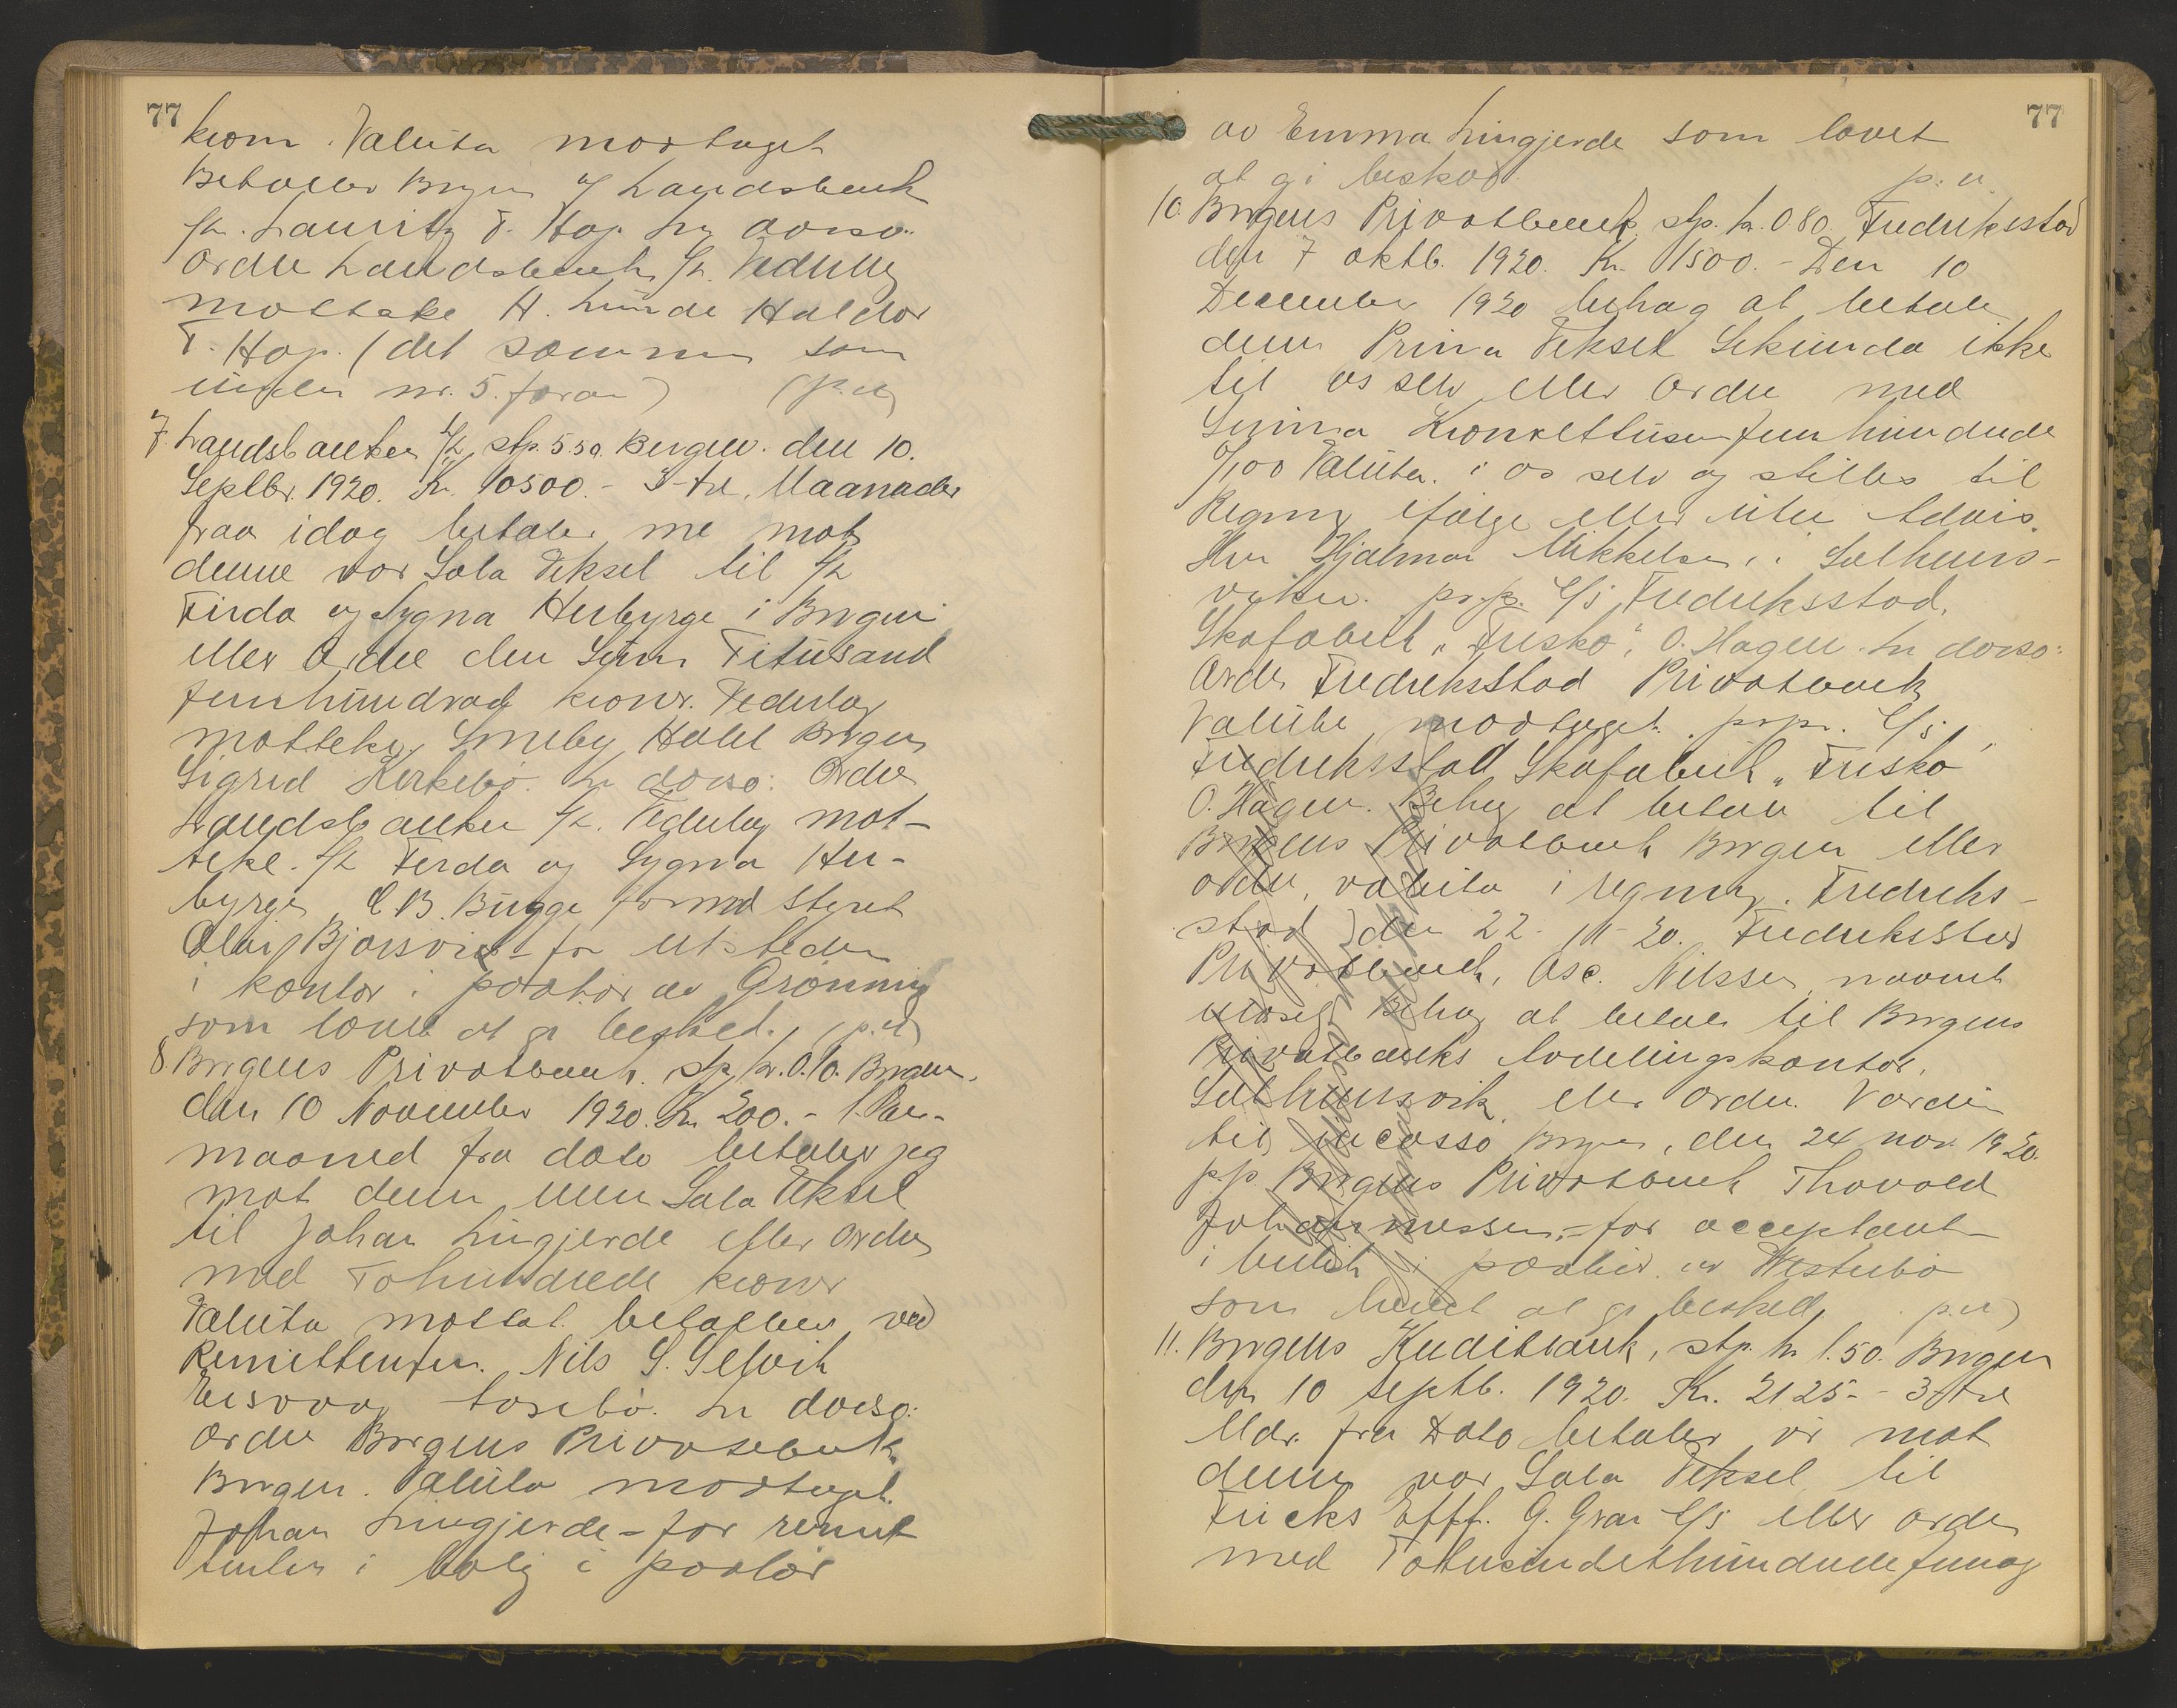 77
kron. Valuta modtaget
Betales Bergen Landsbank
Lauritz T. Hop. In dorso:
Ordre Landsbanken Vederlag
mottake H. Lunde Haldor
T. Hop. (det samme som
under nr. 5. foran) (p.u)
7. Landsbanken stp. 5.50. Bergen. den 10.
Septbr. 1920. Kr. 10500.- 3-tre Maanader
fraa idag betaler me mot
denne vor Sola Veksel til
Firda og Sygna Herbyrge i Bergen
eller Ordre den Sum Titusand
femhundrad kronr. Vederlag
motteke, Smeby Hotel Bergen
Sigrid Kirkebö. In dorso: Ordre
Landsbanken Vederlag mot-
teke. Firda og Sygna Her-
byrge C B. Bugge formd Styret
Olai Bjorsvik - for utsteder
i kontor i paahør av Grönning
som lovet at gi besked. (p.u)
8. Bergens Privatbank. stp kr. 0.10. Bergen.
den 10 November 1920. Kr 200.- 1. En-
maaned fra dato betaler jeg
mot denne min Sola Veksel
til Johan Lingjerde eller ordre
med Tohundrede kroner
Valuta mottat. betalbar ved
Remittenten. Nils S. Selvik
In dorso:
Ordre Bergens Privatbank
Bergen. Valuta modtaget.
Johan Lingjerde - for remit
tenten i bolig i paahør
77
av Emma Lingjerde som lovet
at gi beskod. p.u.
10. Bergens Privatbank, stp. kr. 0.80. Fredriksstad
den 7 oktb. 1920. Kr. 1500.- Den 10
December 1920 behag at betale
denne Prima Veksel Sekunda ikke
til os selv eller Ordre med
Summa Kroner ettusen femhundrede
0/100 Valuta i os selv og stilles til
Regning ifølge eller uten Advis.
Herr Hjalmar Mikkelsen, i Salhus-
viken. pr.p. A/S Fredriksstad,
Skofabrik "Frisko", O. Hagen. In dorso:
Ordre Fredriksstad Privatbank
Valuta modtaget. pr.pr. A/S
Fredriksstad Skofabrik "Frisko
O. Hagen. Behag at betale til
Bergens Privatbank Bergen eller
ordre, valuta i regning. Fredriks-
stad den 22-11-20. Fredriksstad
Privatbank, Osc. Nilssen,
Behag at betale til Bergens
Privatbanks Avdelingskontor,
Salhusvik eller Ordre. Værdi
til incasso Bergen, den 24 nov. 1920.
p.p. Bergens Privatbank Thorvald
Johannessen, - for acceptant
i butik i paahør av Westrebö
som lovet at gi besked, p.u)
11. Bergens Kreditbank, stp. kr 1.50. Bergen
den 10 septb. 1920. Kr. 2125.- 3-tre
Mdr. fra Dato betaler vi mot
denne vor Sola Veksel til
Fricks Eftf. G. Gran A/S eller ordre
med Totusindethundrede fem og